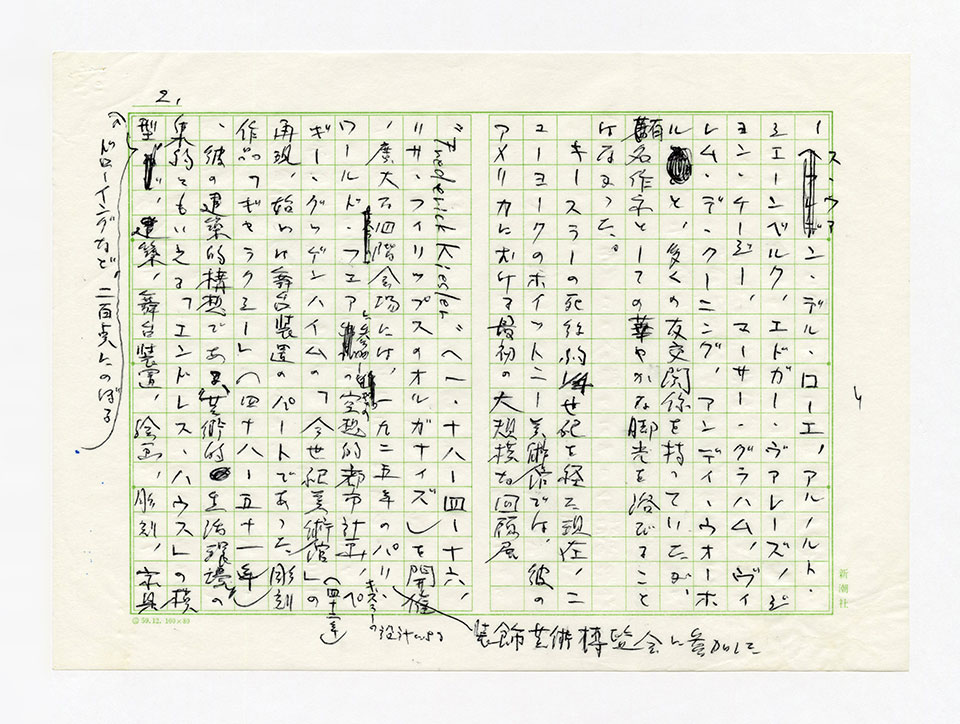 2.
ース・ファン・デル・ローエ、アルノルト・
シェーンベルク、エドガー・ヴァレーズ、ジ
ョン・ケージ、マーサ・グラハム、ヴィ
レム・デ・クーニング、アンディ・ウォーホ
ル と、多くの友交関係を持っていたが、
有名作家としての華やかな脚光を浴びること
はなかった。
キースラーの死後約 世紀を経た現在、ニ
ューヨークのホイットニー美術館では、彼の
アメリカにおける最初の大規模な回顧展
"Frederick Kiesler"(一・十八―四・十六、
リサ・フィリップスのオルガナイズ)を開催
、広大な四階会場には、一九二五年のパリ、
装飾芸術博覧会に参加した
ワールド・フェア の空想的都市計画、ペ
キースラーの設計による
ギー・グッゲンハイムの「今世紀美術館」の
(四十二年)
再現、始めは舞台装置のパートであった彫刻
作品の「ギャラクシー」(四十八―五十一年)
、彼の建築的構想であり、芸術的生活環境の
集約ともいえる「エンドレス・ハウス」の模
型 、建築、舞台装置、絵画、彫刻、家具
のドローイングなど、二百点にのぼる
新潮社
59.12. 100×80